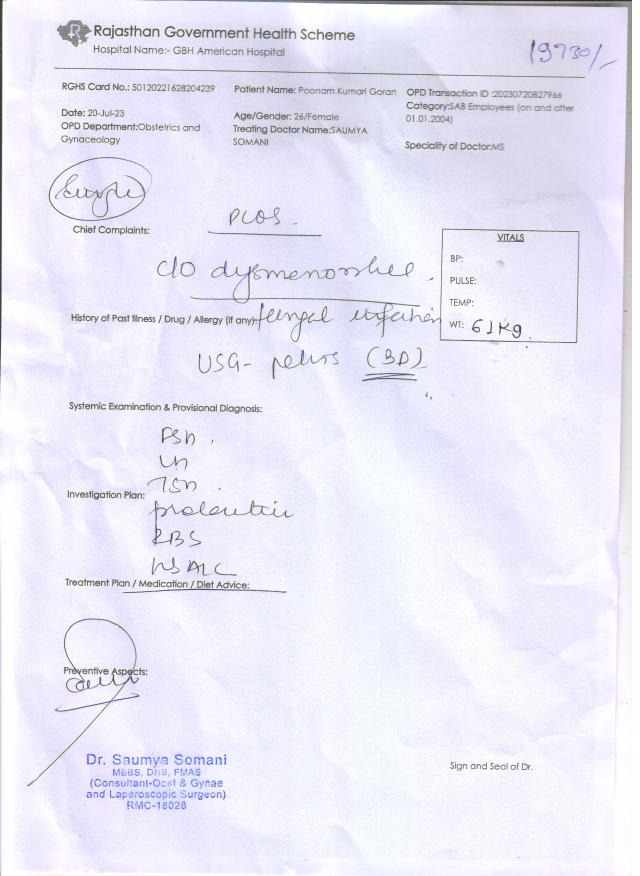 Rajasthan Government Health Scheme
Hospital Name:- GBH American Hospital
19730/-
RGHS Card No.: 50120221628204239
Patient Name: Poonam Kumari Goran
OPD Transaction ID :20230720827966
Category:SAB Employees (on and after 01.01.2004)
Date: 20-Jul-23
Age/Gender: 26/Female
OPD Department:Obstetrics and Gynaceology
Treating Doctor Name:SAUMYA SOMANI
Speciality of Doctor:MS
PCOS
Chief Complaints:
VITALS
BP:
PULSE:
TEMP:
WT: 61 Kg
c/o dysmenorrhea
History of Past Illness / Drug / Allergy (if any): fungal infection
USG- pelvis (BD)
Systemic Examination & Provisional Diagnosis:
FSH
LH
TSH
Investigation Plan:
prolactin
RBS
Treatment Plan / Medication / Diet Advice:
Preventive Aspects:
Dr. Saumya Somani
MBBS, DNB, FMAS
(Consultant-Obst & Gynae
and Laparoscopic Surgeon)
RMC-18028
Sign and Seal of Dr.